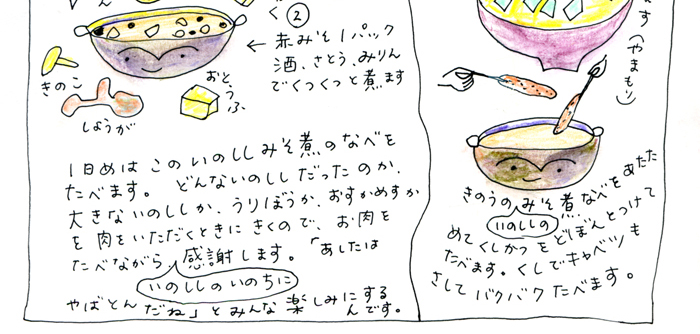 ん
く②
← 赤みそ1パック
酒、さとう、みりん
でぐつぐつと煮ます
きのこ
おとうふ
しょうが
1日めは このいのししみそ煮のなべを
たべます。 どんないのししだったのか、
大きないのししか、うりぼうか、おすかめすか
を 肉をいただくときに きくので、お肉を
たべながら、感謝します。「あしたは
いのししのいのちに
やばとんだね」とみんな楽しみにする
んです。
す(やまもり)
きのうのみそ煮なべをあたた
いのししの
めてくしかつをどぼんとつけて
たべます。くしでキャベツも
さしてバクバクたべます。